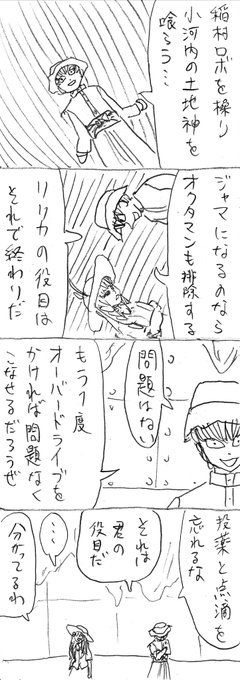 稲村ロボを操り
小河内の土地神を
喰ろう…
ジャマになるのなら
オクタマンも排除する
リリカの役目は
それで終わりだ
問題はない
もう1度
オーバードライブを
かければ問題なく
こなせるだろうぜ
投薬と点滴を
忘れるな
それは
君の
役目だ
…
分かってるわ